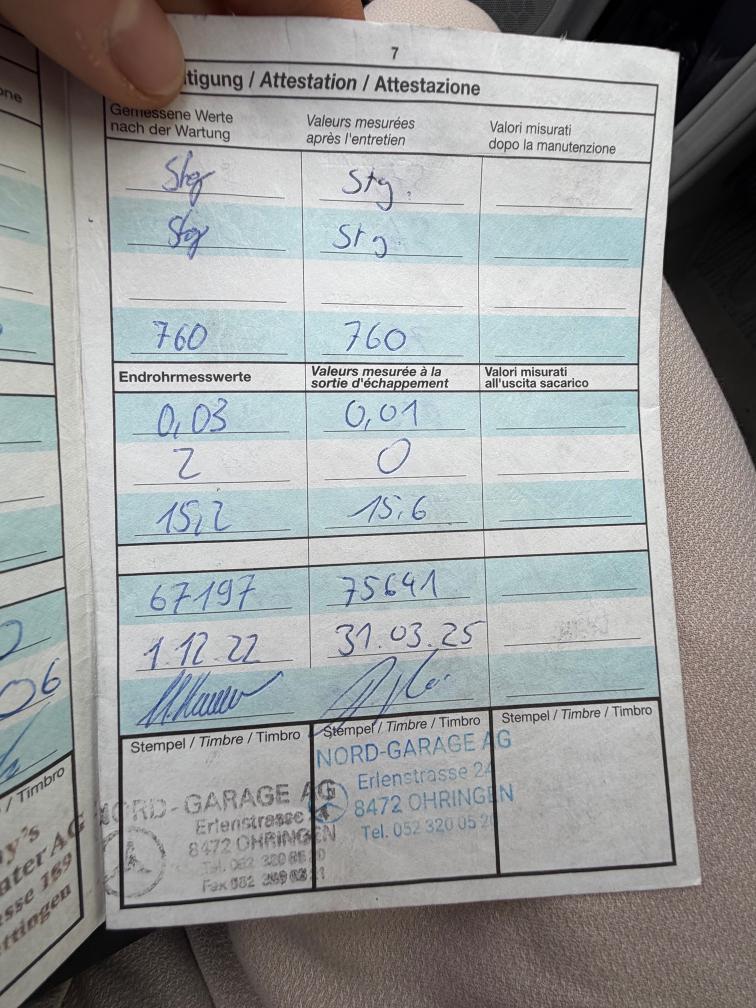 one
7
tigung / Attestation / Attestazione
Gemessene Werte nach der Wartung
Valeurs mesurées après l'entretien
Valori misurati dopo la manutenzione
Stg Stg.
Stg Stg
760 760
Endrohrmesswerte
Valeurs mesurée à la sortie d'échappement
Valori misurati all'uscita sacarico
0,03 0,01
2 0
15,2 15,6
67197 75641
1.12.22 31.03.25
06
Stempel / Timbre / Timbro
Stempel / Timbre / Timbro
Stempel / Timbre / Timbro
/ Timbro
y's
ater AG
sse 189
ttingen
ORD-GARAGE AG
Erlenstrasse
8472 OHRINGEN
Tel. 052
Fax 052
NORD-GARAGE AG
Erlenstrasse 24
8472 OHRINGEN
Tel. 052 320 05 20